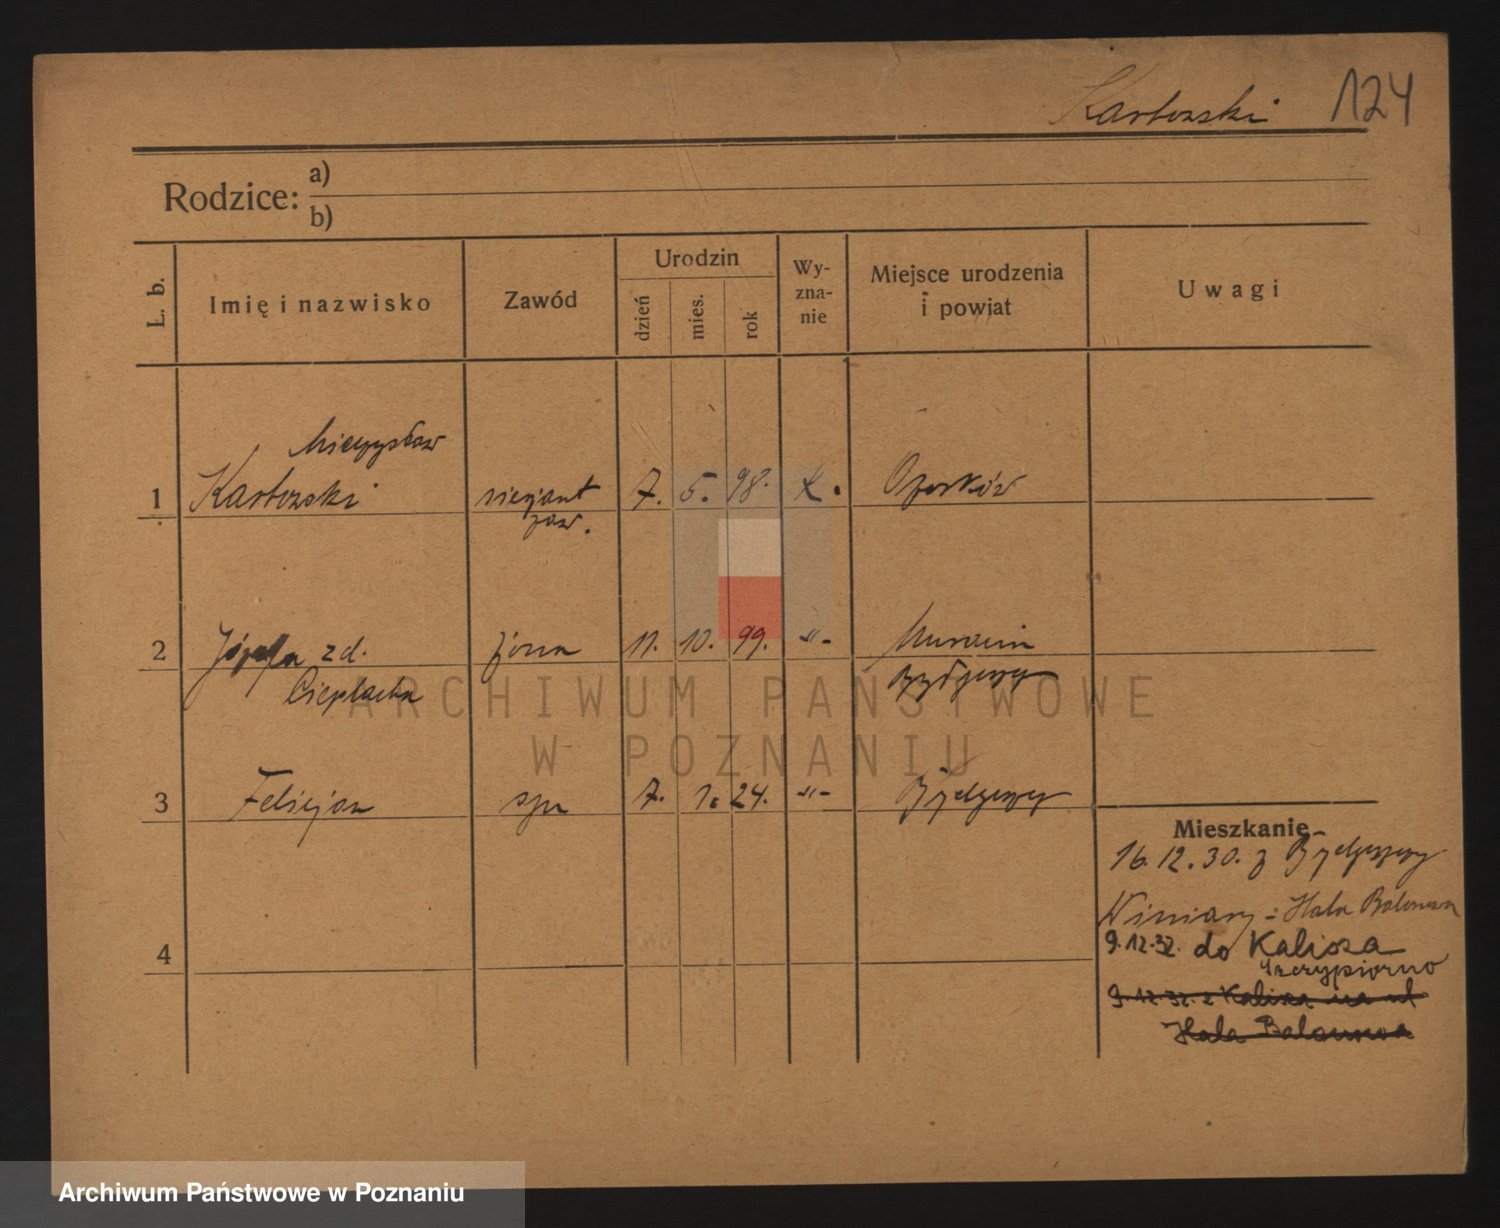 Kartozski 124
Rodzice: a)
b)
L. b. Imię i nazwisko Zawód Urodzin dzień mies. rok Wy-zna-nie Miejsce urodzenia i powiat Uwagi
Mieczysław
1 Kartozski sierjant 7. 5. 98. k. Ozorków
zaw.
2 Józefa zd. żona 11. 10. 99. -"- Murowin
Cieplucha Bydgoszcz
ARCHIWUM PAŃSTWOWE
W POZNANIU
3 Felicjan syn 7. 1. 24. -"- Bydgoszcz
Mieszkanie
16.12.30. z Bydgoszczy
Winiary - Hala Balonowa
9.12.32. do Kalisza
Szczypiorno
4
9.12.32. z Kalisza na ul
Hala Balonowa
Archiwum Państwowe w Poznaniu